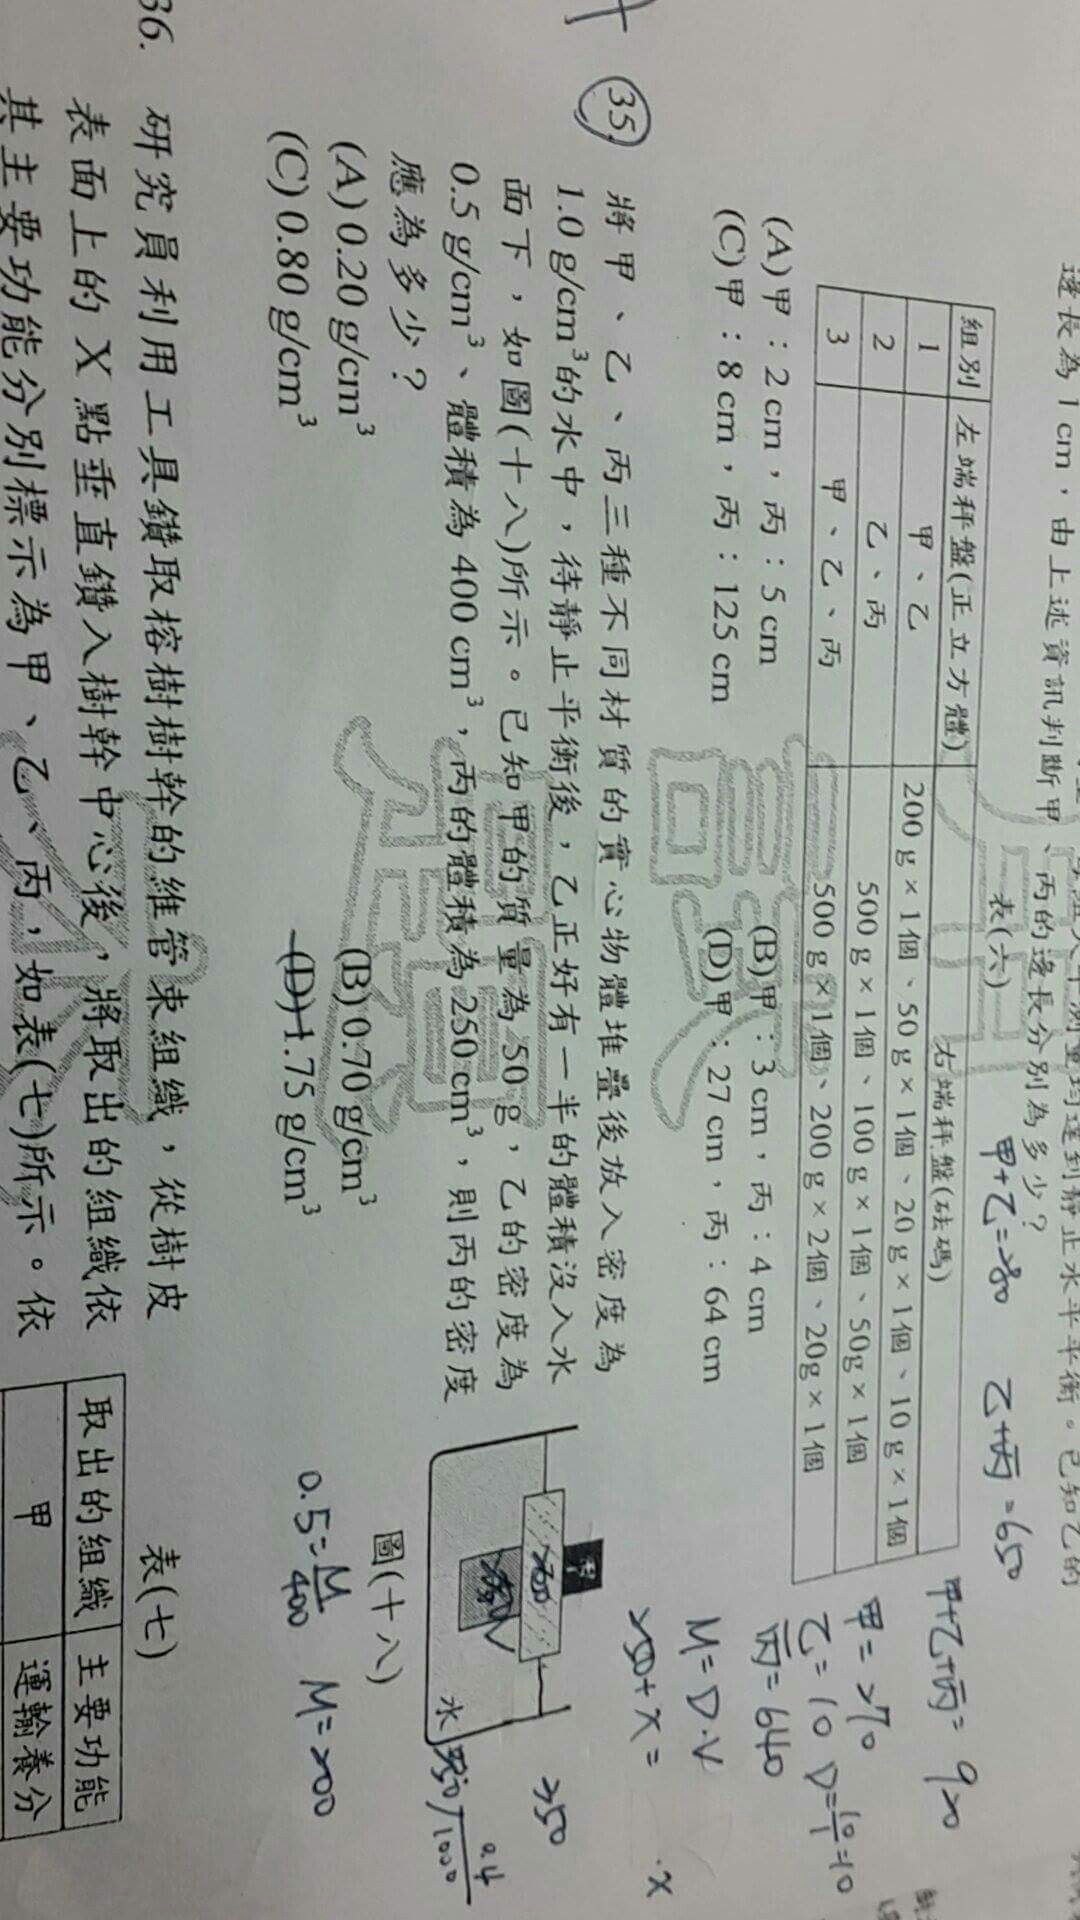 邊長為1 cm，由上述資訊判斷甲、丙的邊長分別為多少？
表(六)
組別 左端秤盤(正立方體) 右端秤盤(砝碼)
1 甲、乙 200 g×1個、50 g×1個、20 g×1個、10 g×1個
2 乙、丙 500 g×1個、100 g×1個、50g×1個
3 甲、乙、丙 500 g×1個、200 g×2個、20g×1個
(A)甲：2 cm，丙：5 cm (B)甲：3 cm，丙：4 cm
(C)甲：8 cm，丙：125 cm (D)甲：27 cm，丙：64 cm
甲+乙=280 乙+丙=650
甲+乙+丙=920
甲=270
乙=10 D=10/1=10
丙=640
M=D·V
250+X=
·X
35. 將甲、乙、丙三種不同材質的實心物體堆疊後放入密度為
1.0 g/cm³的水中，待靜止平衡後，乙正好有一半的體積沒入水
面下，如圖(十八)所示。已知甲的質量為50 g，乙的密度為
0.5 g/cm³、體積為400 cm³，丙的體積為250 cm³，則丙的密度
應為多少？
(A)0.20 g/cm³ (B)0.70 g/cm³
(C)0.80 g/cm³ (D)1.75 g/cm³
甲
200
250
水
圖(十八)
350
0.4
1000
0.5=M/400 M=200
36. 研究員利用工具鑽取榕樹樹幹的維管束組織，從樹皮
表面上的X點垂直鑽入樹幹中心後，將取出的組織依
其主要功能分別標示為甲、乙、丙，如表(七)所示。依
表(七)
取出的組織 主要功能
甲 運輸養分